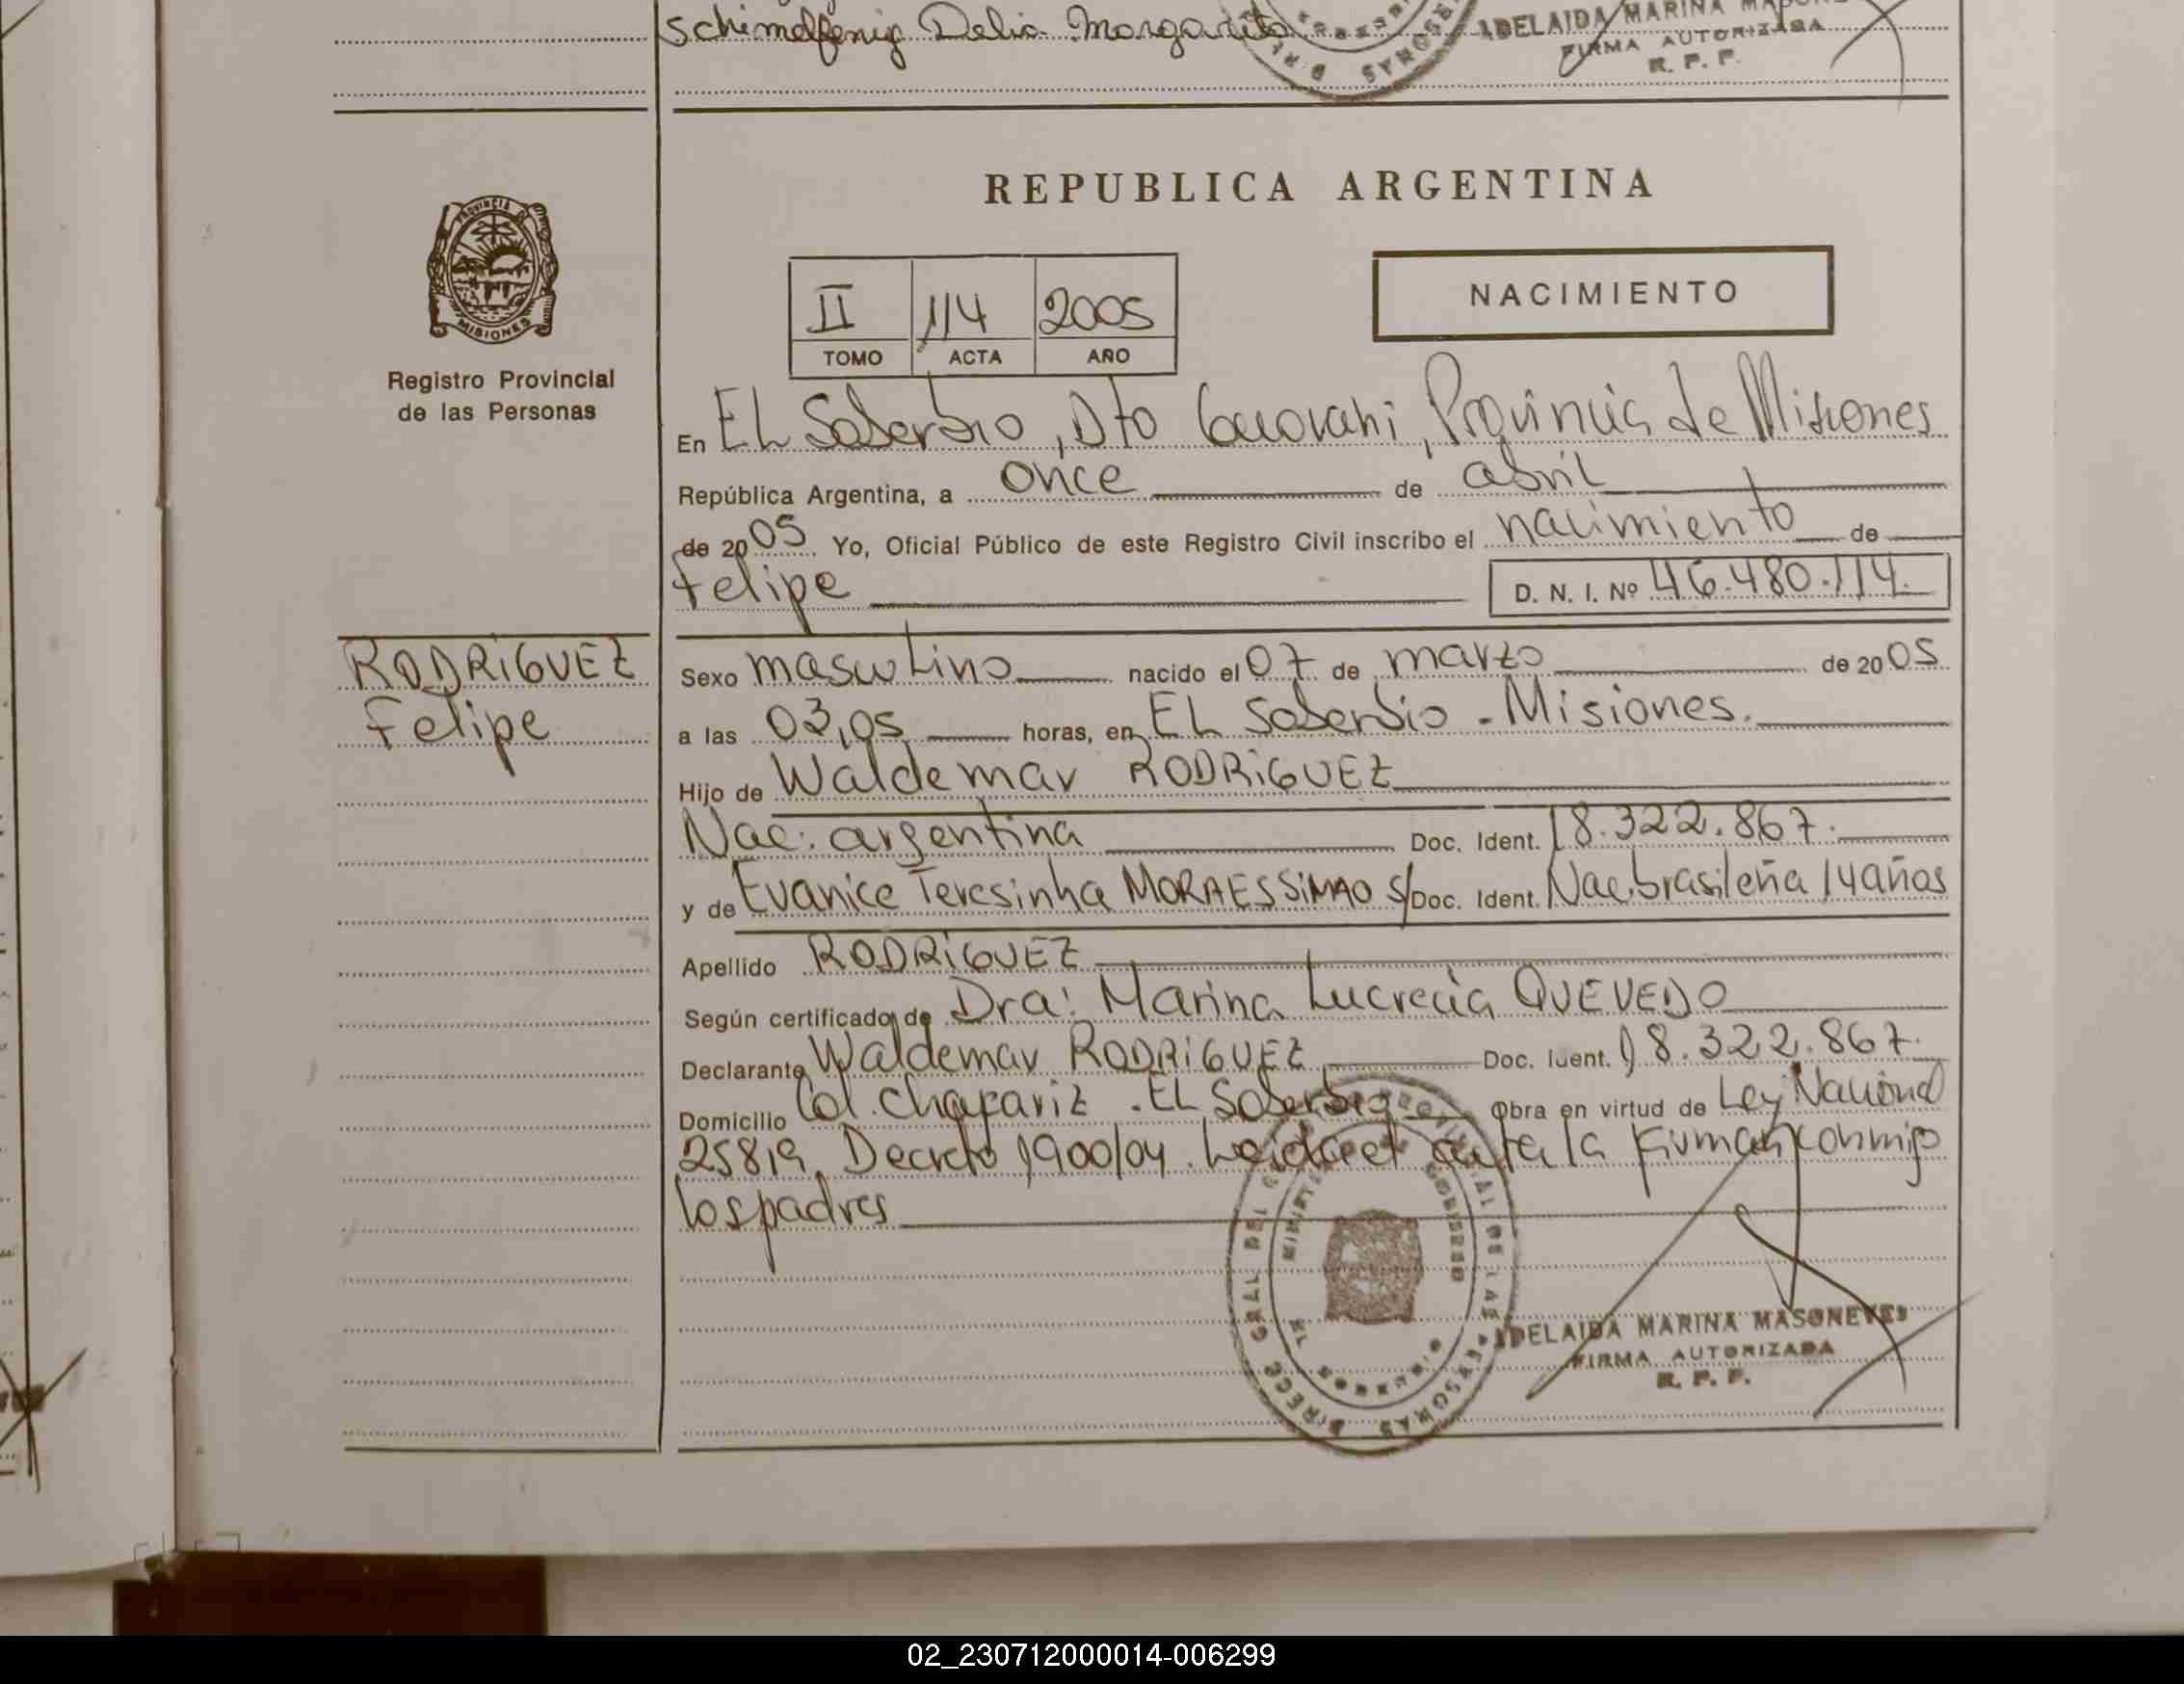 Schimelfenig Delia Margarita
ADELAIDA MARINA
FIRMA AUTORIZADA
R. P. P.
REPUBLICA ARGENTINA
PROVINCIA DE
MISIONES
Registro Provincial
de las Personas
II 114 2005
TOMO ACTA AÑO
NACIMIENTO
En EL Soberbio, Dto Guarani, Provincia de Misiones
República Argentina, a once de abril
de 2005 Yo, Oficial Público de este Registro Civil inscribo el nacimiento de
Felipe
D. N. I. Nº 46.480.114.
RODRiGUEZ
Felipe
Sexo masculino nacido el 07 de marzo de 2005
a las 03,05 horas, en EL Soberbio - Misiones.
Hijo de Waldemar RODRiGUEZ
Nac: argentina Doc. Ident. 18.322.867.
y de Evanice Teresinha MORAES SiMAO S/Doc. Ident. Nac. brasileña 14 años
Apellido RODRiGUEZ
Según certificado de Dra: Marina Lucrecia QUEVEDO
Declarante Waldemar RODRiGUEZ Doc. Ident. 18.322.867.
Domicilio Col. Chafariz . EL Soberbio Obra en virtud de Ley Nacional
25819, Decreto 1900/04. Leida el acta la firman conmigo
los padres
ADELAIDA MARINA MASONEVES
FIRMA AUTORIZADA
R. P. P.
02_230712000014-006299